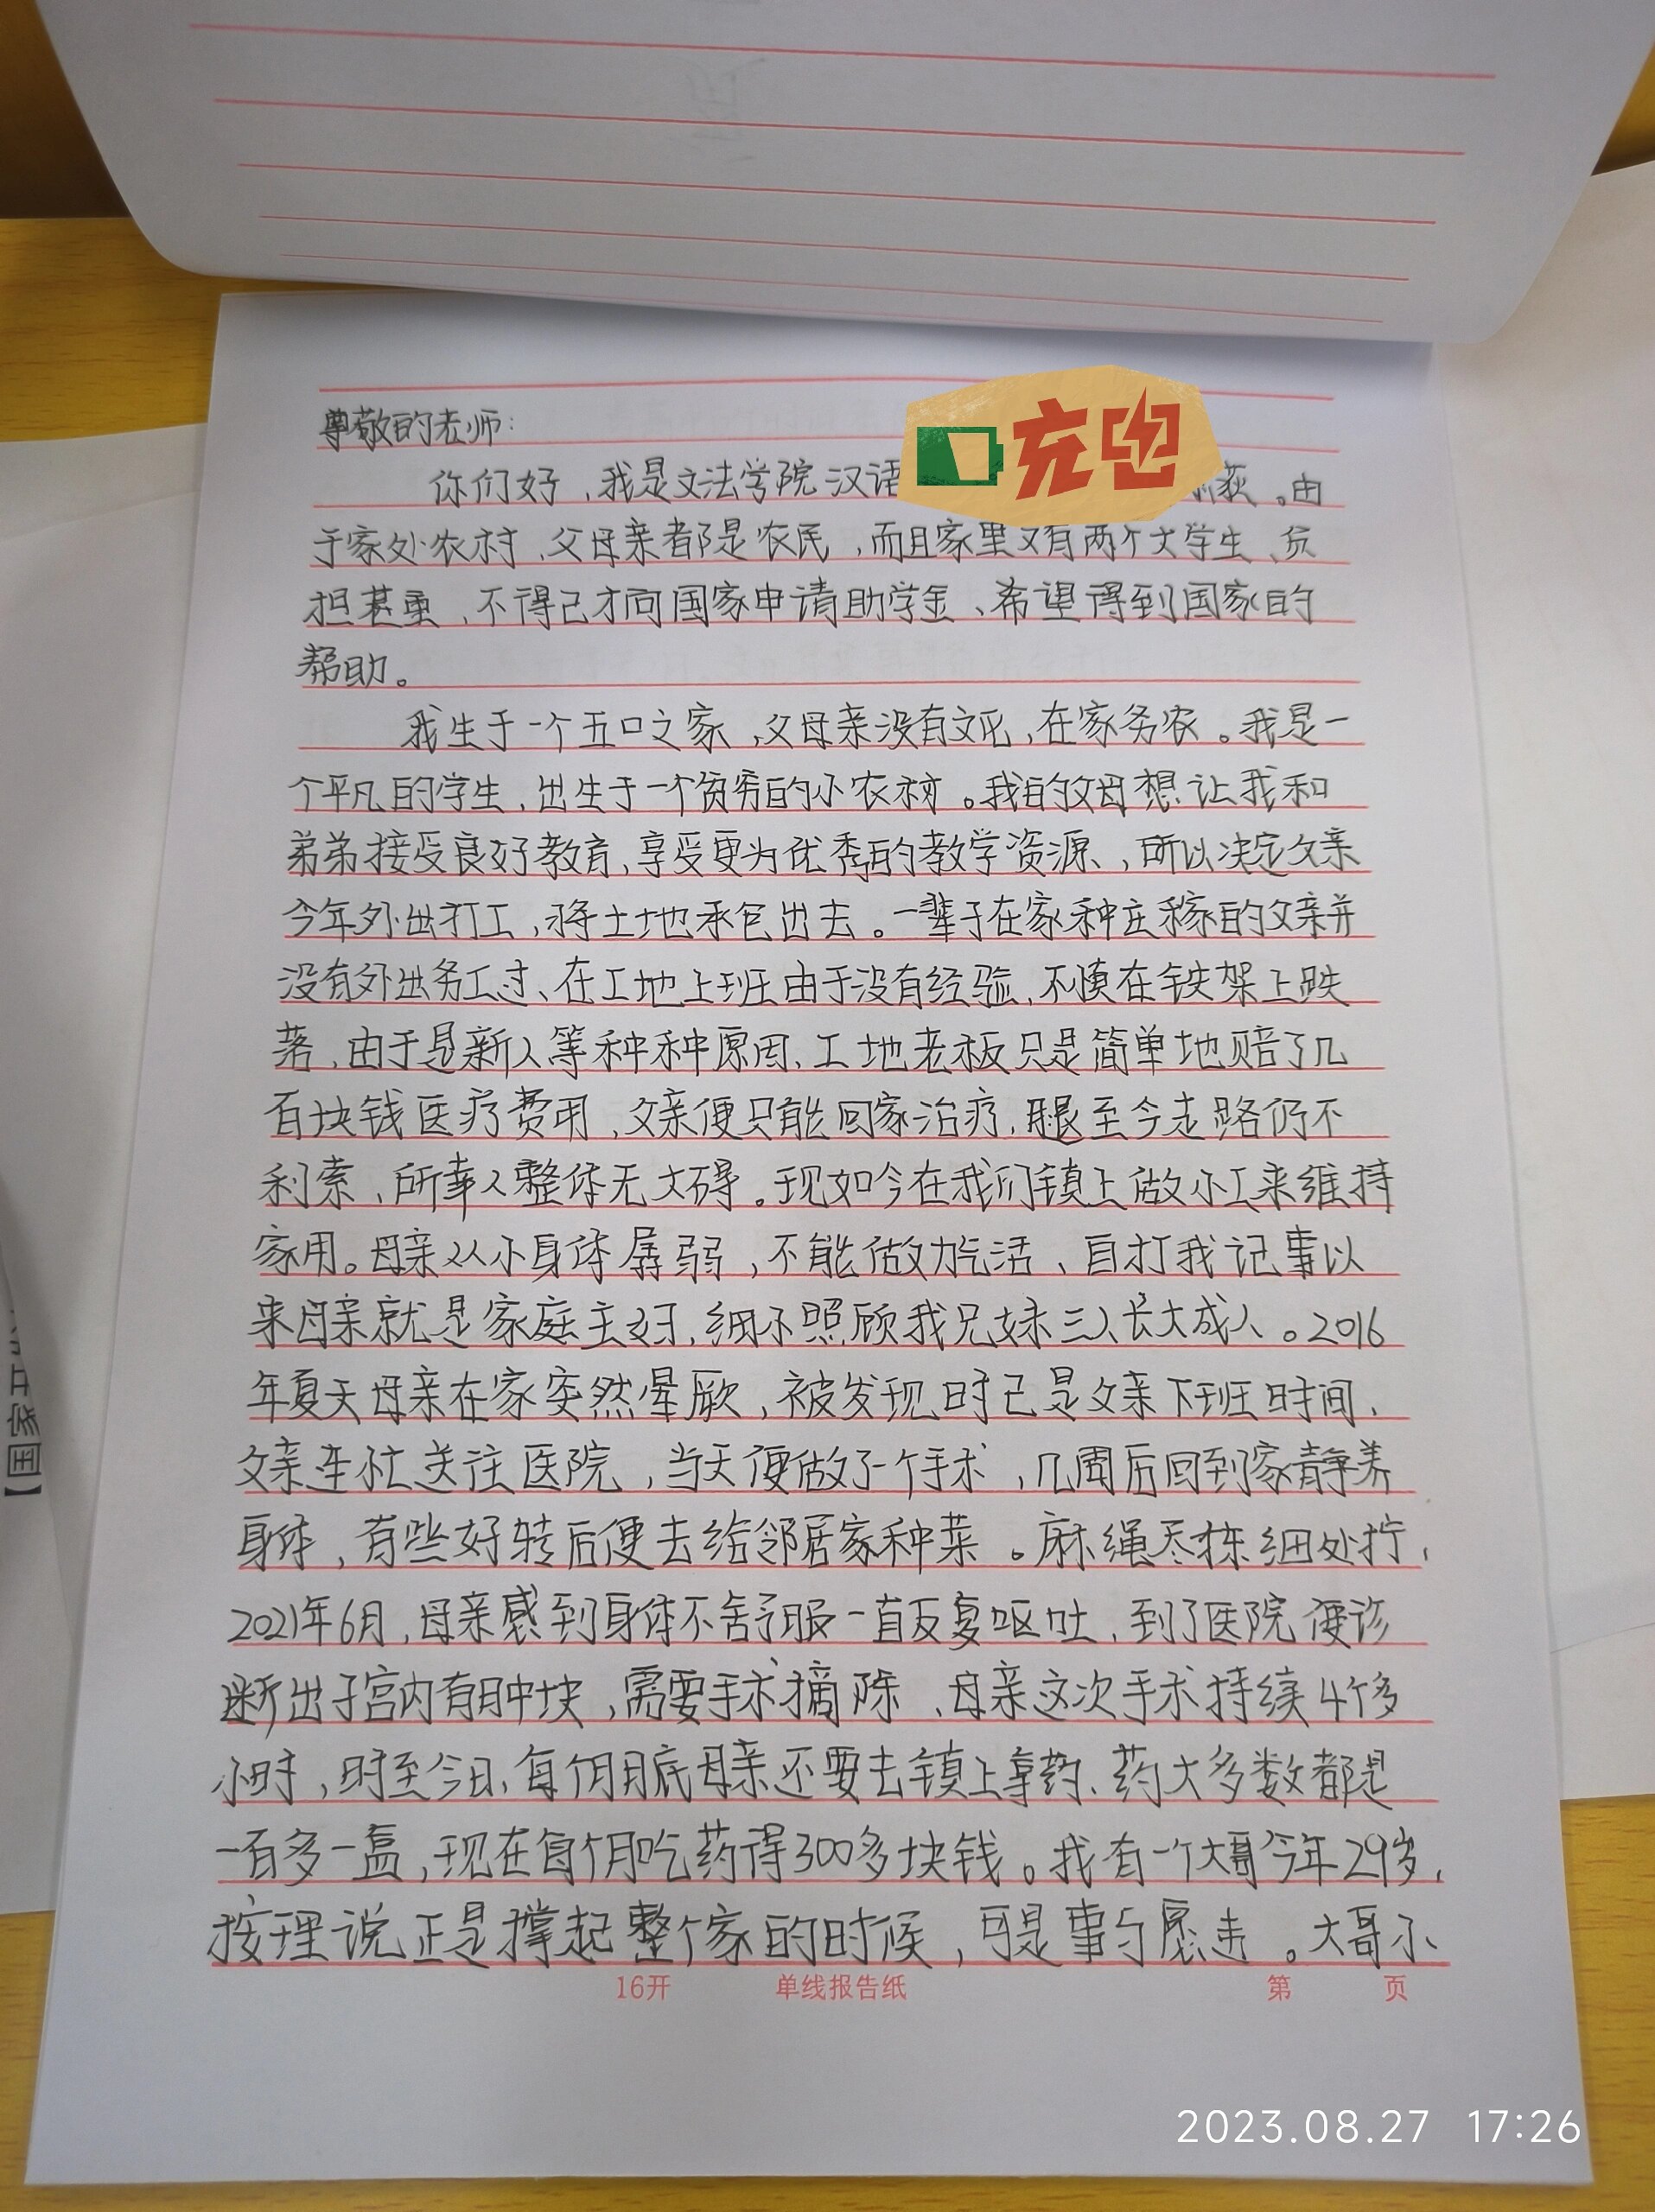 尊敬的老师：
你们好，我是文法学院汉语
充电
荻。由
于家处农村，父母亲都是农民，而且家里又有两个大学生、负
担甚重，不得已才向国家申请助学金、希望得到国家的
帮助。
我生于一个五口之家，父母亲没有文化，在家务农。我是一
个平凡的学生，出生于一个贫穷的小农村。我的父母想让我和
弟弟接受良好教育，享受更为优秀的教学资源，所以决定父亲
今年外出打工，将土地承包出去。一辈子在家种庄稼的父亲并
没有外出务工过、在工地上班由于没有经验，不慎在铁架上跌
落，由于是新人等种种原因，工地老板只是简单地赔了几
百块钱医疗费用，父亲便只能回家治疗，腿至今走路仍不
利索，所幸人整体无大碍。现如今在我们镇上做小工来维持
家用。母亲从小身体孱弱，不能做力气活、自打我记事以
来母亲就是家庭主妇，细心照顾我兄妹三人长大成人。2016
年夏天母亲在家突然晕厥，被发现时已是父亲下班时间，
父亲连忙送往医院，当天便做了个手术，几周后回到家静养
身体，有些好转后便去给邻居家种菜。麻绳尽拣细处拧，
2021年6月，母亲感到身体不舒服一直反复呕吐，到了医院便诊
断出子宫内有肿块，需要手术摘除、母亲这次手术持续4个多
小时，时至今日，每个月月底母亲还要去镇上拿药、药大多数都是
一百多一盒，现在每个月吃药得300多块钱。我有一个大哥今年29岁，
按理说正是撑起整个家的时候，可是事与愿违。大哥小
16开 单线报告纸 第 页
国家
2023.08.27 17:26